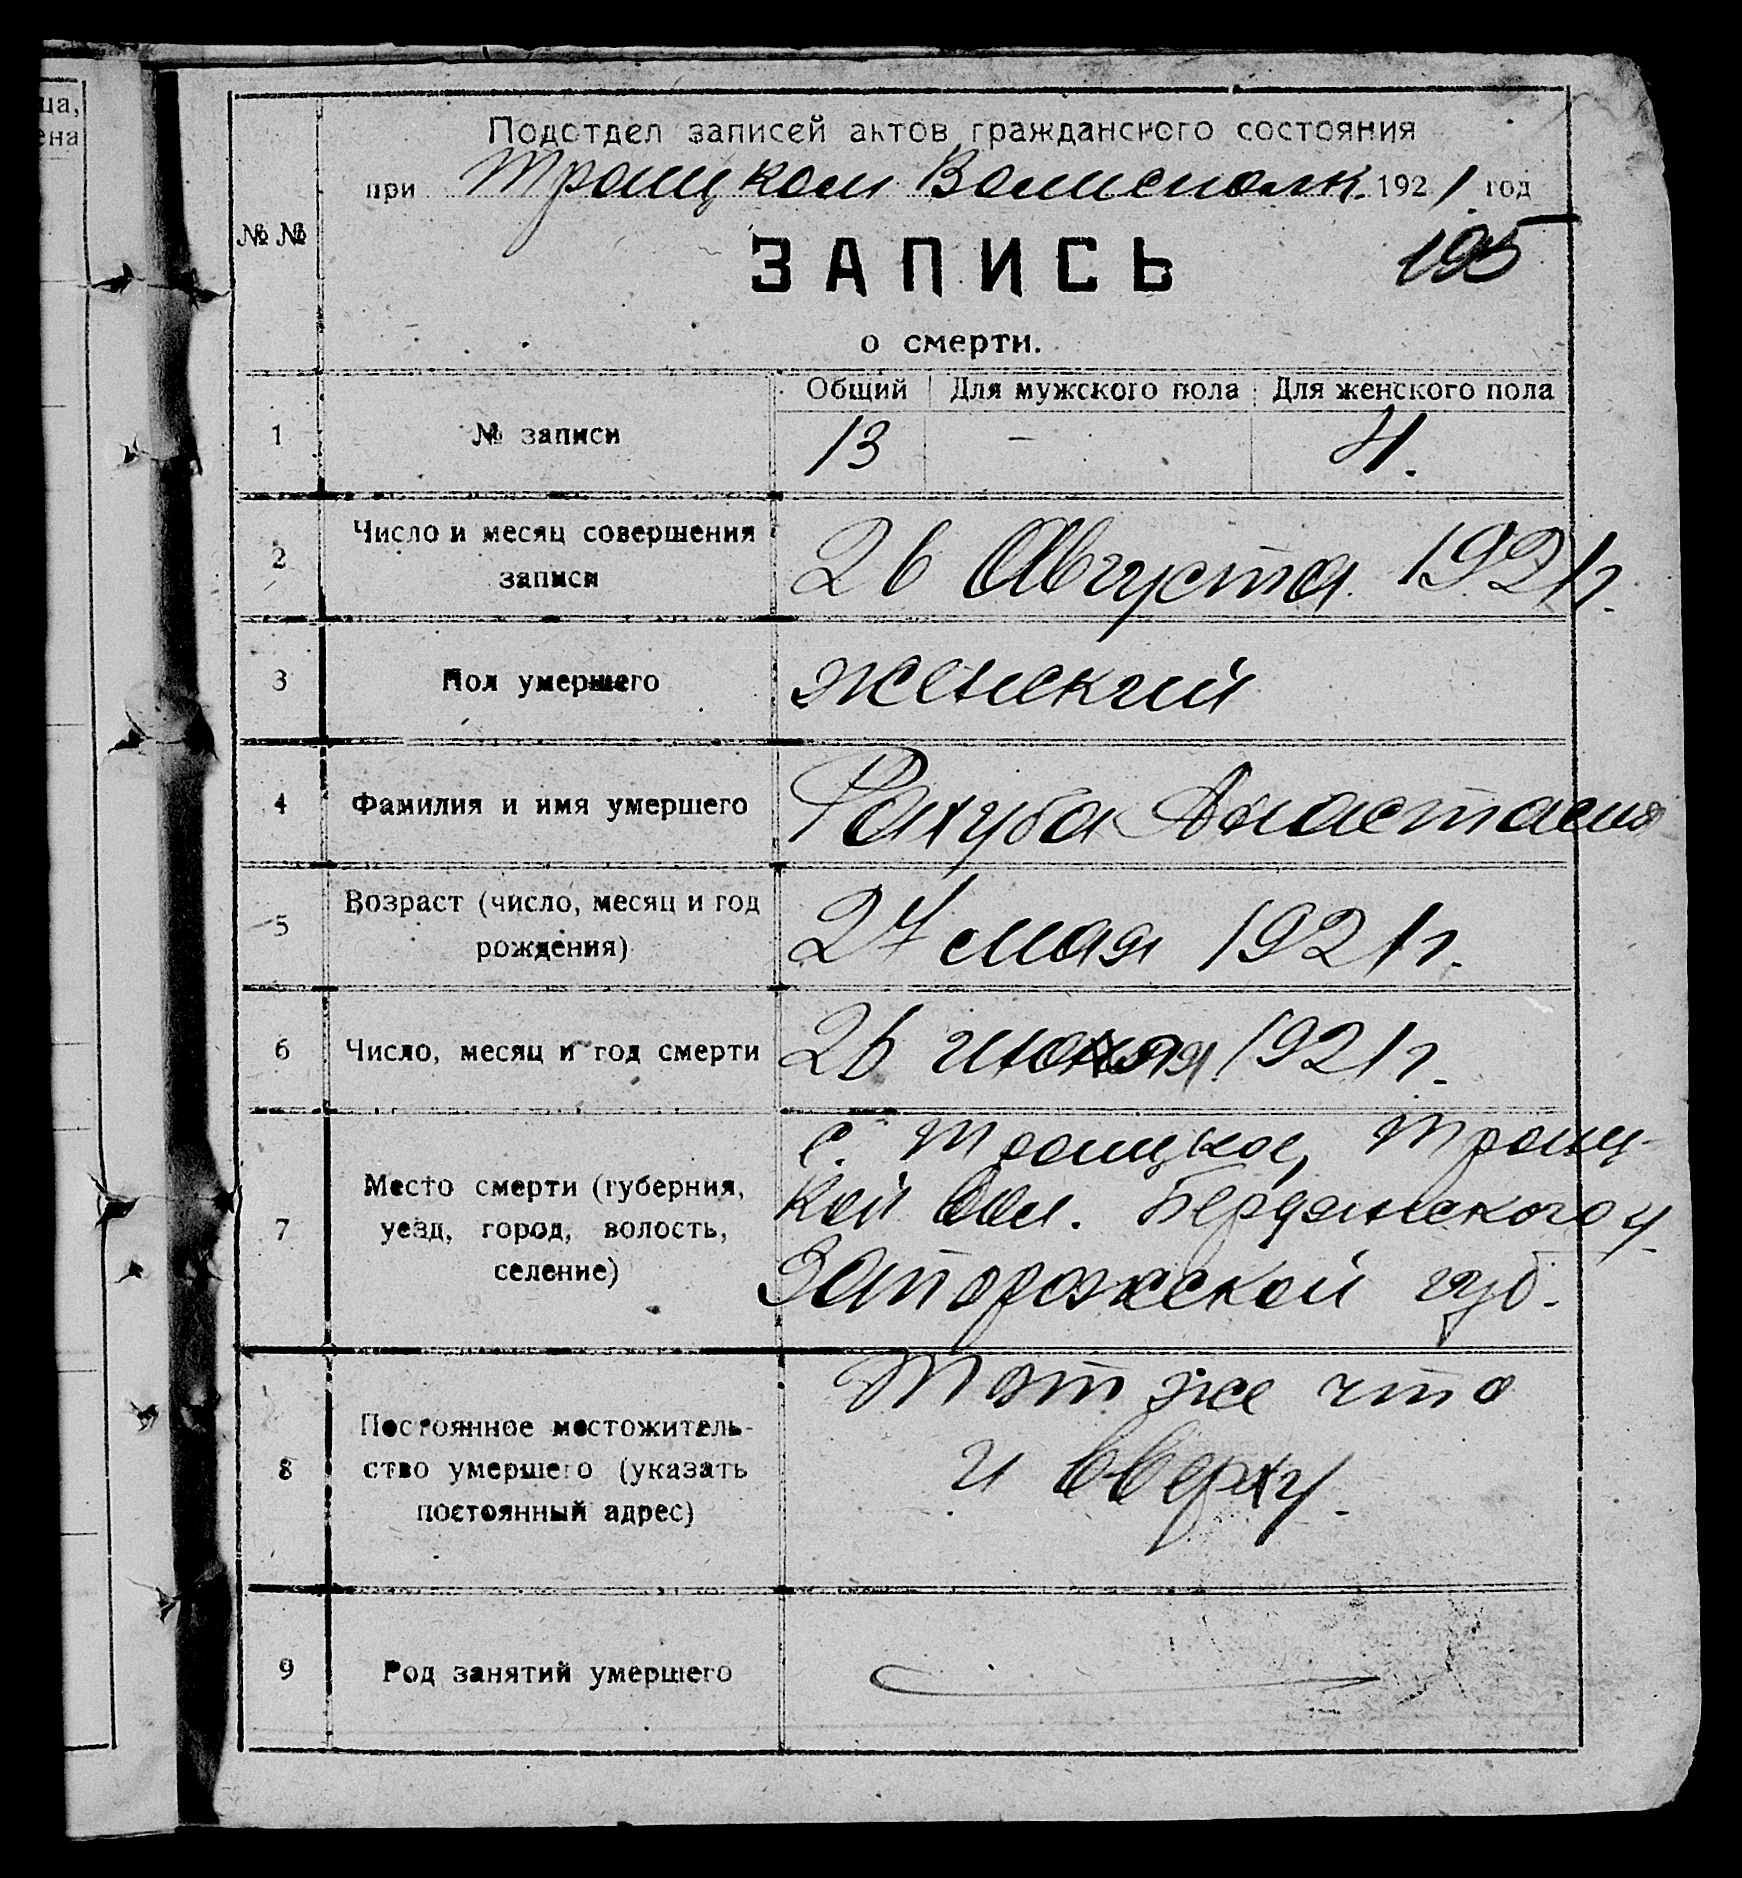 ца,
ена
Подотдел записей актов гражданского состояния
при Троицком Волисполк. 1921 год
№ №
195
ЗАПИСЬ
о смерти.
Общий Для мужского пола Для женского пола
1 № записи 13 - 4.
2 Число и месяц совершения
записи 26 Августа 1921 г.
3 Пол умершего женский
4 Фамилия и имя умершего Рахуба Анастасия
5 Возраст (число, месяц и год
рождения) 27 мая 1921 г.
6 Число, месяц и год смерти 26 1921 г.
с. Троицкое, Троиц-
7 Место смерти (губерния,
уезд, город, волость,
селение)
кой вол. Бердянского у.
Запорожской губ.
8 Постоянное местожитель-
ство умершего (указать
постоянный адрес)
Тот же что
и вверху.
9 Род занятий умершего